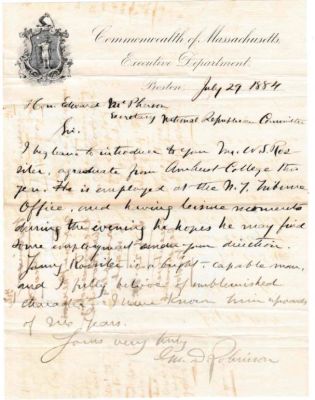 Commonwealth of Massachusetts,
Executive Department.
Boston, July 29 1884
Hon Edward McPherson
Secretary National Republican Committee
Sir.
I beg leave to introduce to you Mr. W. S. Ros-
siter, a graduate from Amherst College this
year. He is employed at the N.Y. Tribune
Office, and having leisure moments
during the evening he hopes he may find
some employment under your direction.
Young Rossiter is a bright, capable man,
and I fully believe of unblemished
character. I have known him upwards
of two years.
Yours very truly
Geo. D. Robinson